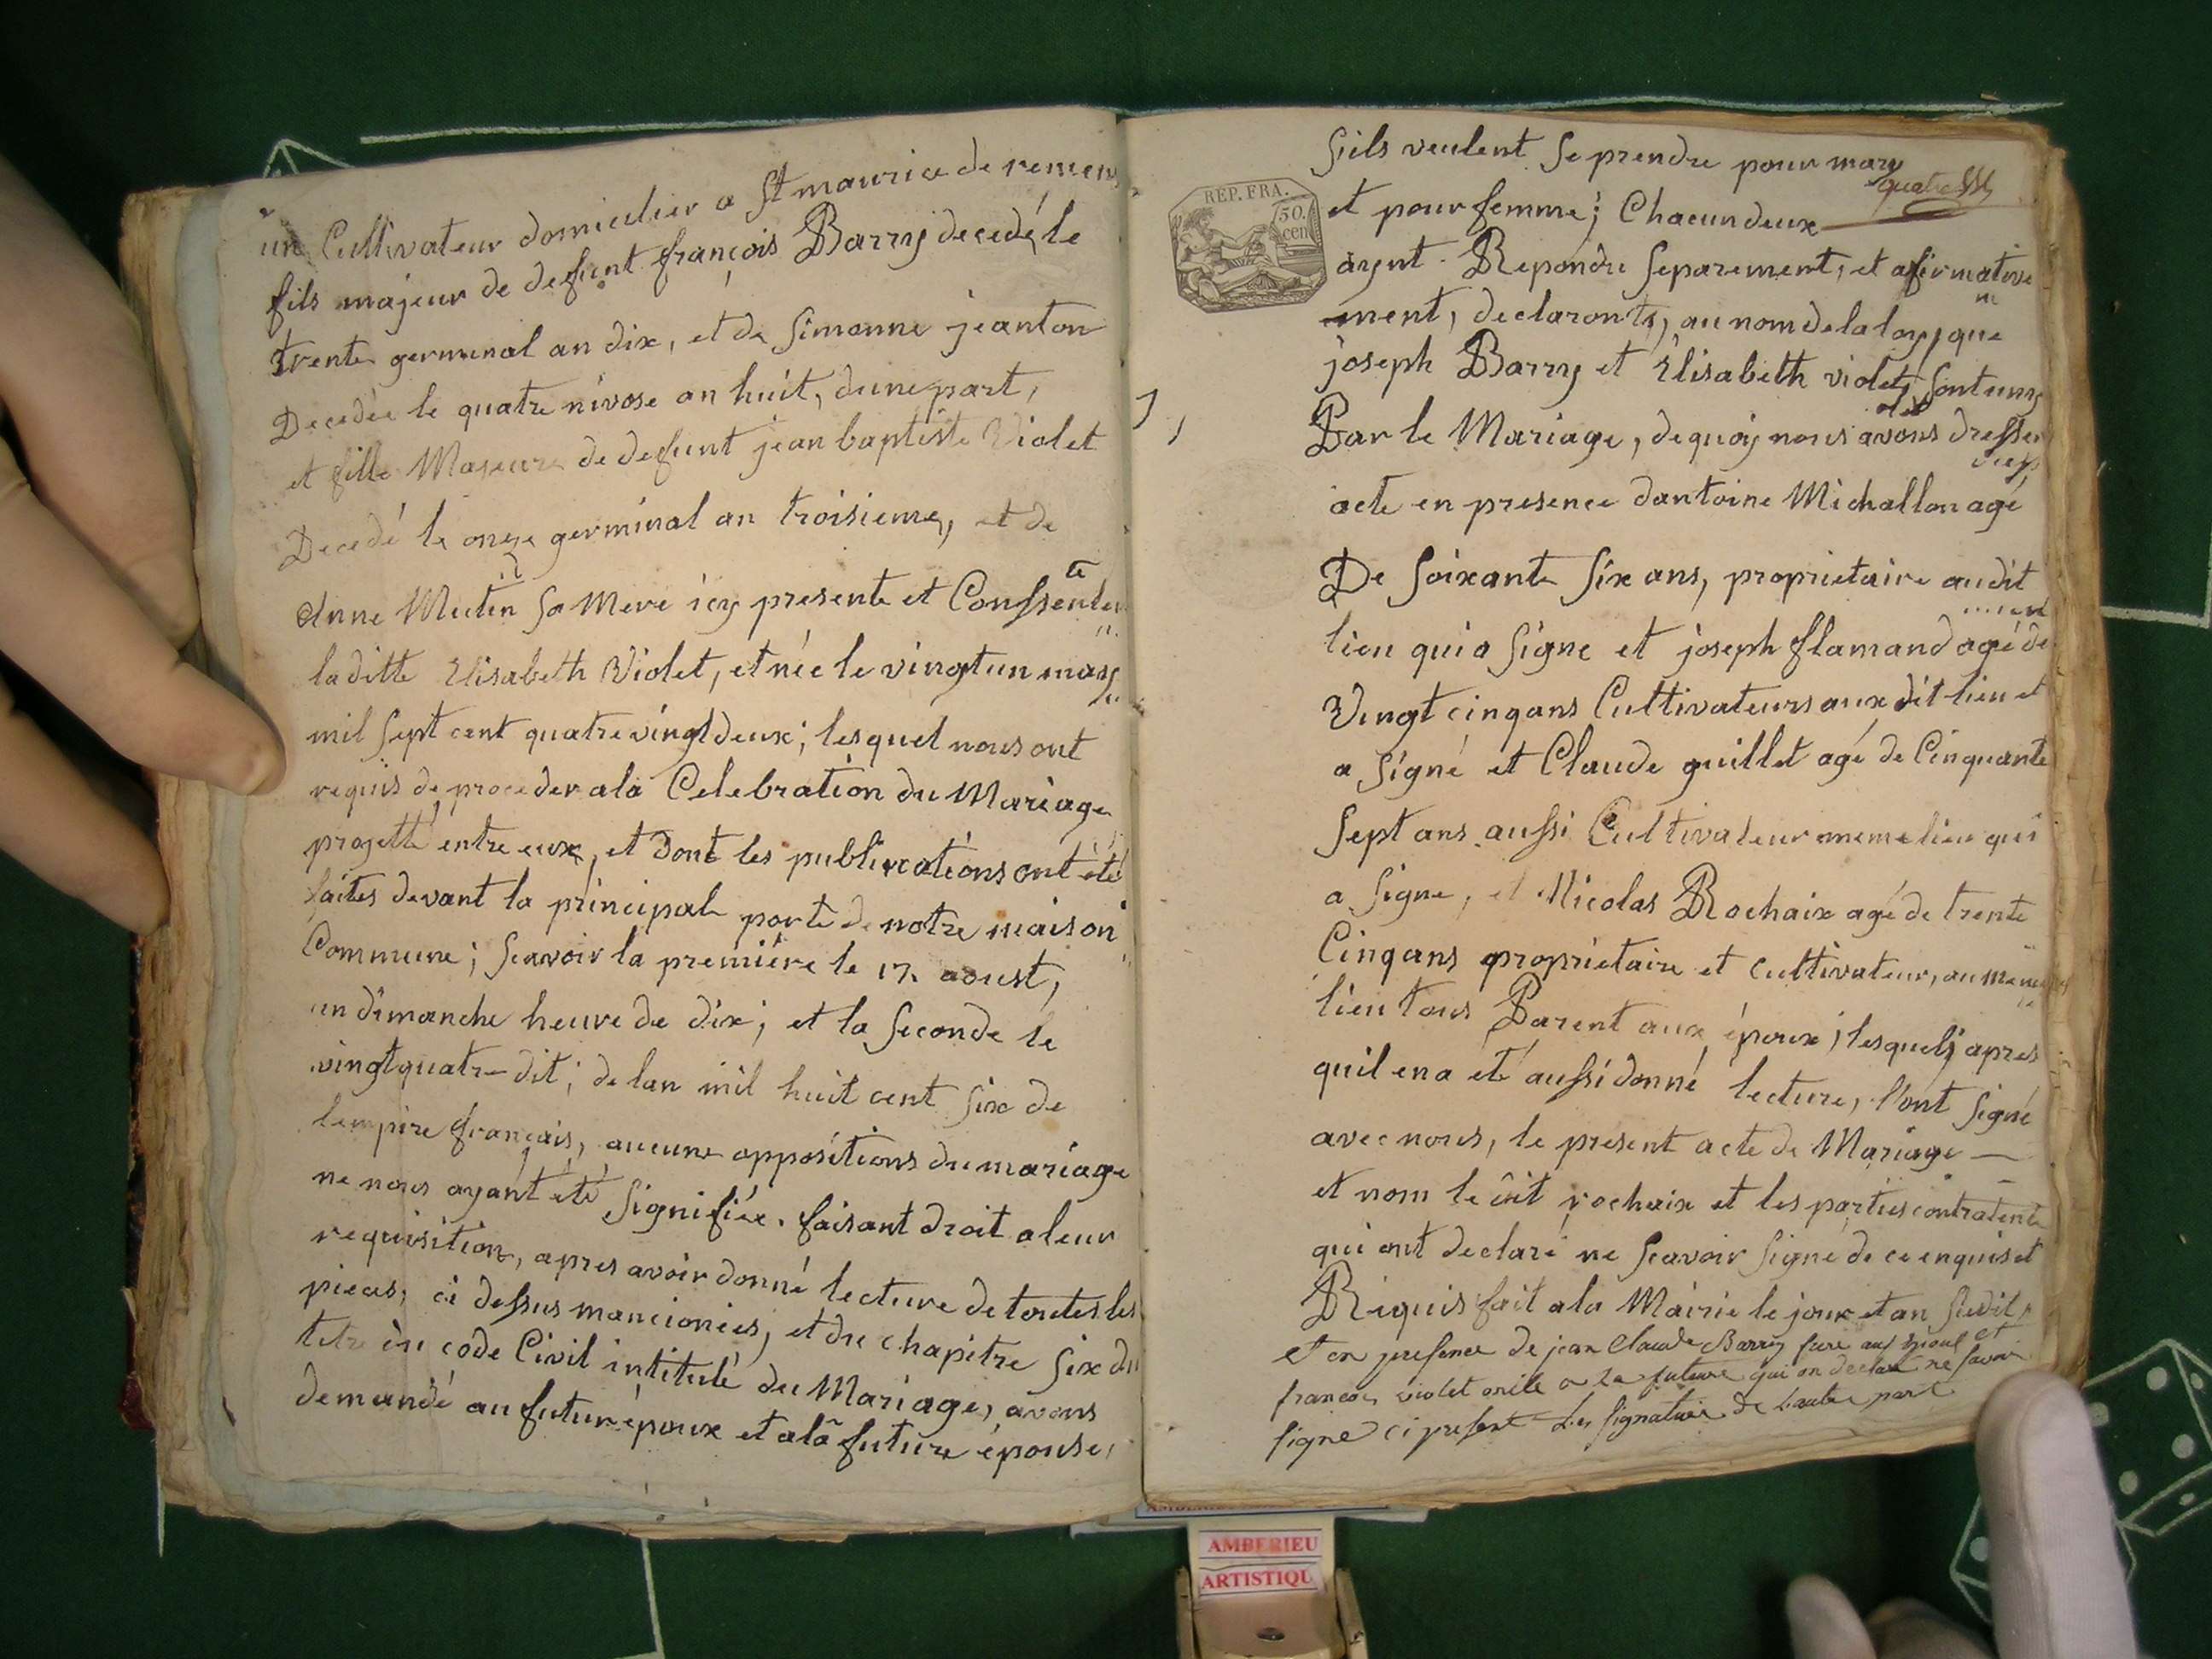 un Cultivateur domicilier a St maurice de remens
fils majeur de defunt françois Barry decedé, le
trente germinal an dix, et de Simonne jeanton
Decedée le quatre nivose an huit, dune part,
et fille Majeure de defunt jean baptiste Violet
Decedé le onze germinal an troisieme, et de
Anne Mutin Sa Mere icy presente et Conssente
te
laditte Elisabeth Violet, et née le vingt un mars
mil Sept cent quatre vingt deux; lesquel nous ont
requis de proceder ala Celebration du Mariage
projetté entre eux, et dont les publications ont été
faites devant la principale porte de notre maison
Commune; Scavoir la premiére le 17. aoust,
un dimanche heure de dix; et la Seconde le
vingtquatre dit; de lan mil huit cent Six de
lempire français, aucune oppositions du mariage
ne nous ayant été Signifiée. faisant droit a leur
requisition, apres avoir donné lecture de toutes les
pieces, ci dessus mancionées, et du chapitre Six du
titre du code Civil intitulé du Mariage, avons
demandé au futur époux et ala future épouse,
Sils veulent Se prendre pour mary
quatre
REP. FRA.
50. cen
et pour femme; Chacun deux
ayent Repondu Separement, et afirmative
ment, declaronts, au nom de la loy, que
joseph Barry et Elisabeth violet, Sont unis
Par le Mariage, de quoy nous avons dresser
acte en presence dantoine Michallon agé
De Soixante Six ans, proprietaire audit
lieu qui a Signe et joseph flamand agé de
Vingt cinq ans Cultivateurs aux dit lieu et
a Signé et Claude guillet agé de Cinquante
Sept ans aussi Cultivateur meme lieu qui
a Signe, et Nicolas Rochaix agé de trente
Cinq ans proprietaire et cultivateur, au meme
lieu tous Parent aux époux; lesquels apres
quil en a eté aussi donné lecture, l'ont Signé
avec nous, le present acte de Mariage —
et nom le dit rochaix et les parties contratente
qui ont declaré ne Scavoir Signé de ce enquis et
Requis fait ala Mairie le jour et an Susdit
et en presence de jean Claude Barry frere au et
francois violet oncle a la future qui on declare ne savoir
signe ci present Les Signature de Lautre part
AMBERIEU
ARTISTIQU